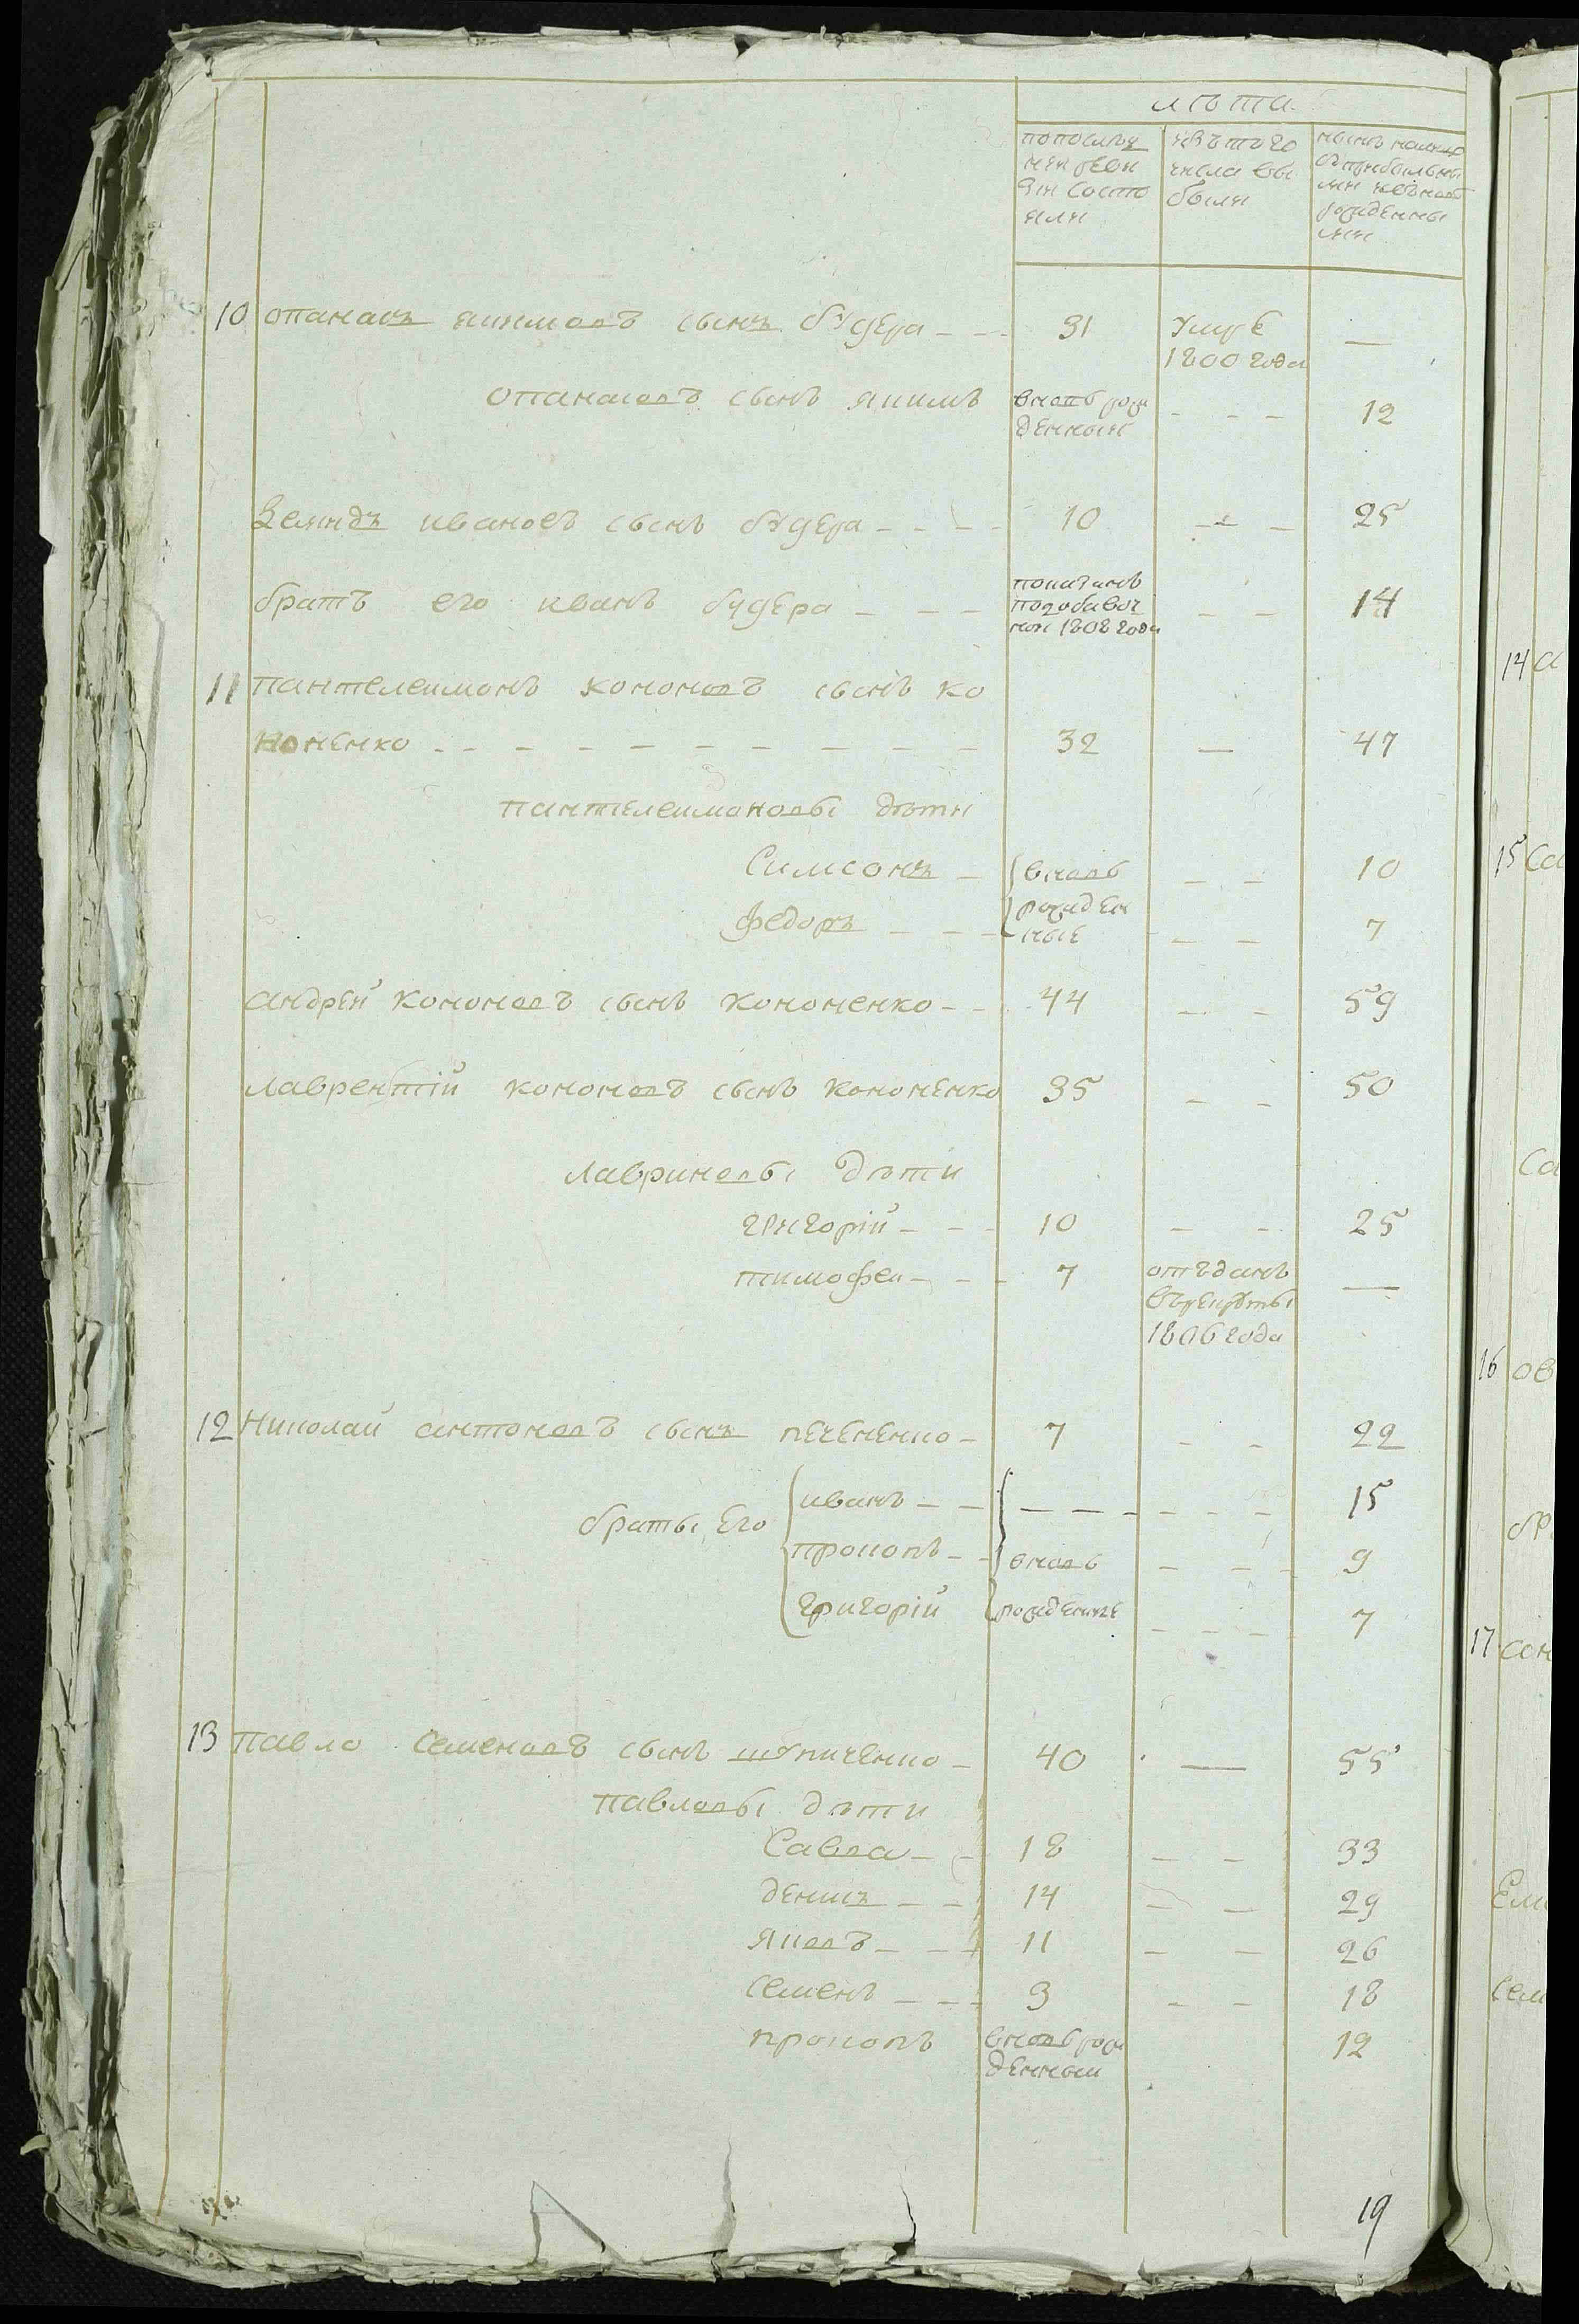 лѣта
попослед
ней реви
зіи состо
яли
изътого
числа вы
были
нынѣ налицо
съприбылы
ми иевновъ
рожденны
ми
10 опанасъ якимовъ сынъ будера 31 умре —
1800 года
опанасовъ сынъ якимъ вновь рож 12
денный
Демидъ ивановъ сынъ будера 10 25
братъ его иванъ будера показанъ 14
подобавоч
ной 1808 года
11 пантелеимонъ кононовъ сынъ ко
ноненко 32 — 47
пантелеимоновы дѣти
Симсонъ вновь 10
федоръ рожден 7
ные
андрей кононовъ сынъ кононенко 44 59
лаврентій кононовъ сынъ кононенко 35 50
лавриновы дѣти
григорій 10 25
тимофей 7 отъданъ —
врекруты
1806 года
12 Николай антоновъ сынъ печененко 7 22
иванъ 15
браты его
прокопъ вновь 9
григорій рожденые 7
13 павло семеновъ сынъ шупиченко 40 — 55
павловы дѣти
Савва 18 33
денисъ 14 29
яковъ 11 26
семенъ 3 18
прокопъ вновь рож 12
денный
19
14 а
15 са
са
16 ов
бр
17 сон
Ели
сем